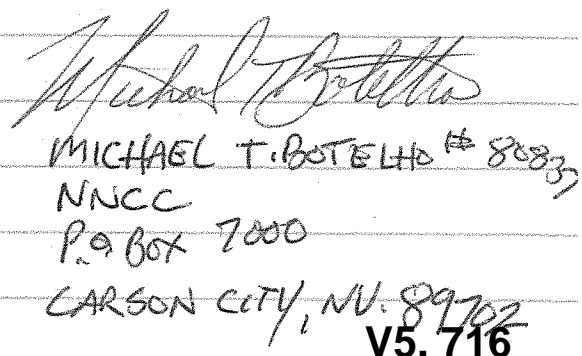 Michael T Botelho
MICHAEL T. BOTELHO # 80837
NNCC
P.O BOX 7000
CARSON CITY, NV. 89702
V5. 716